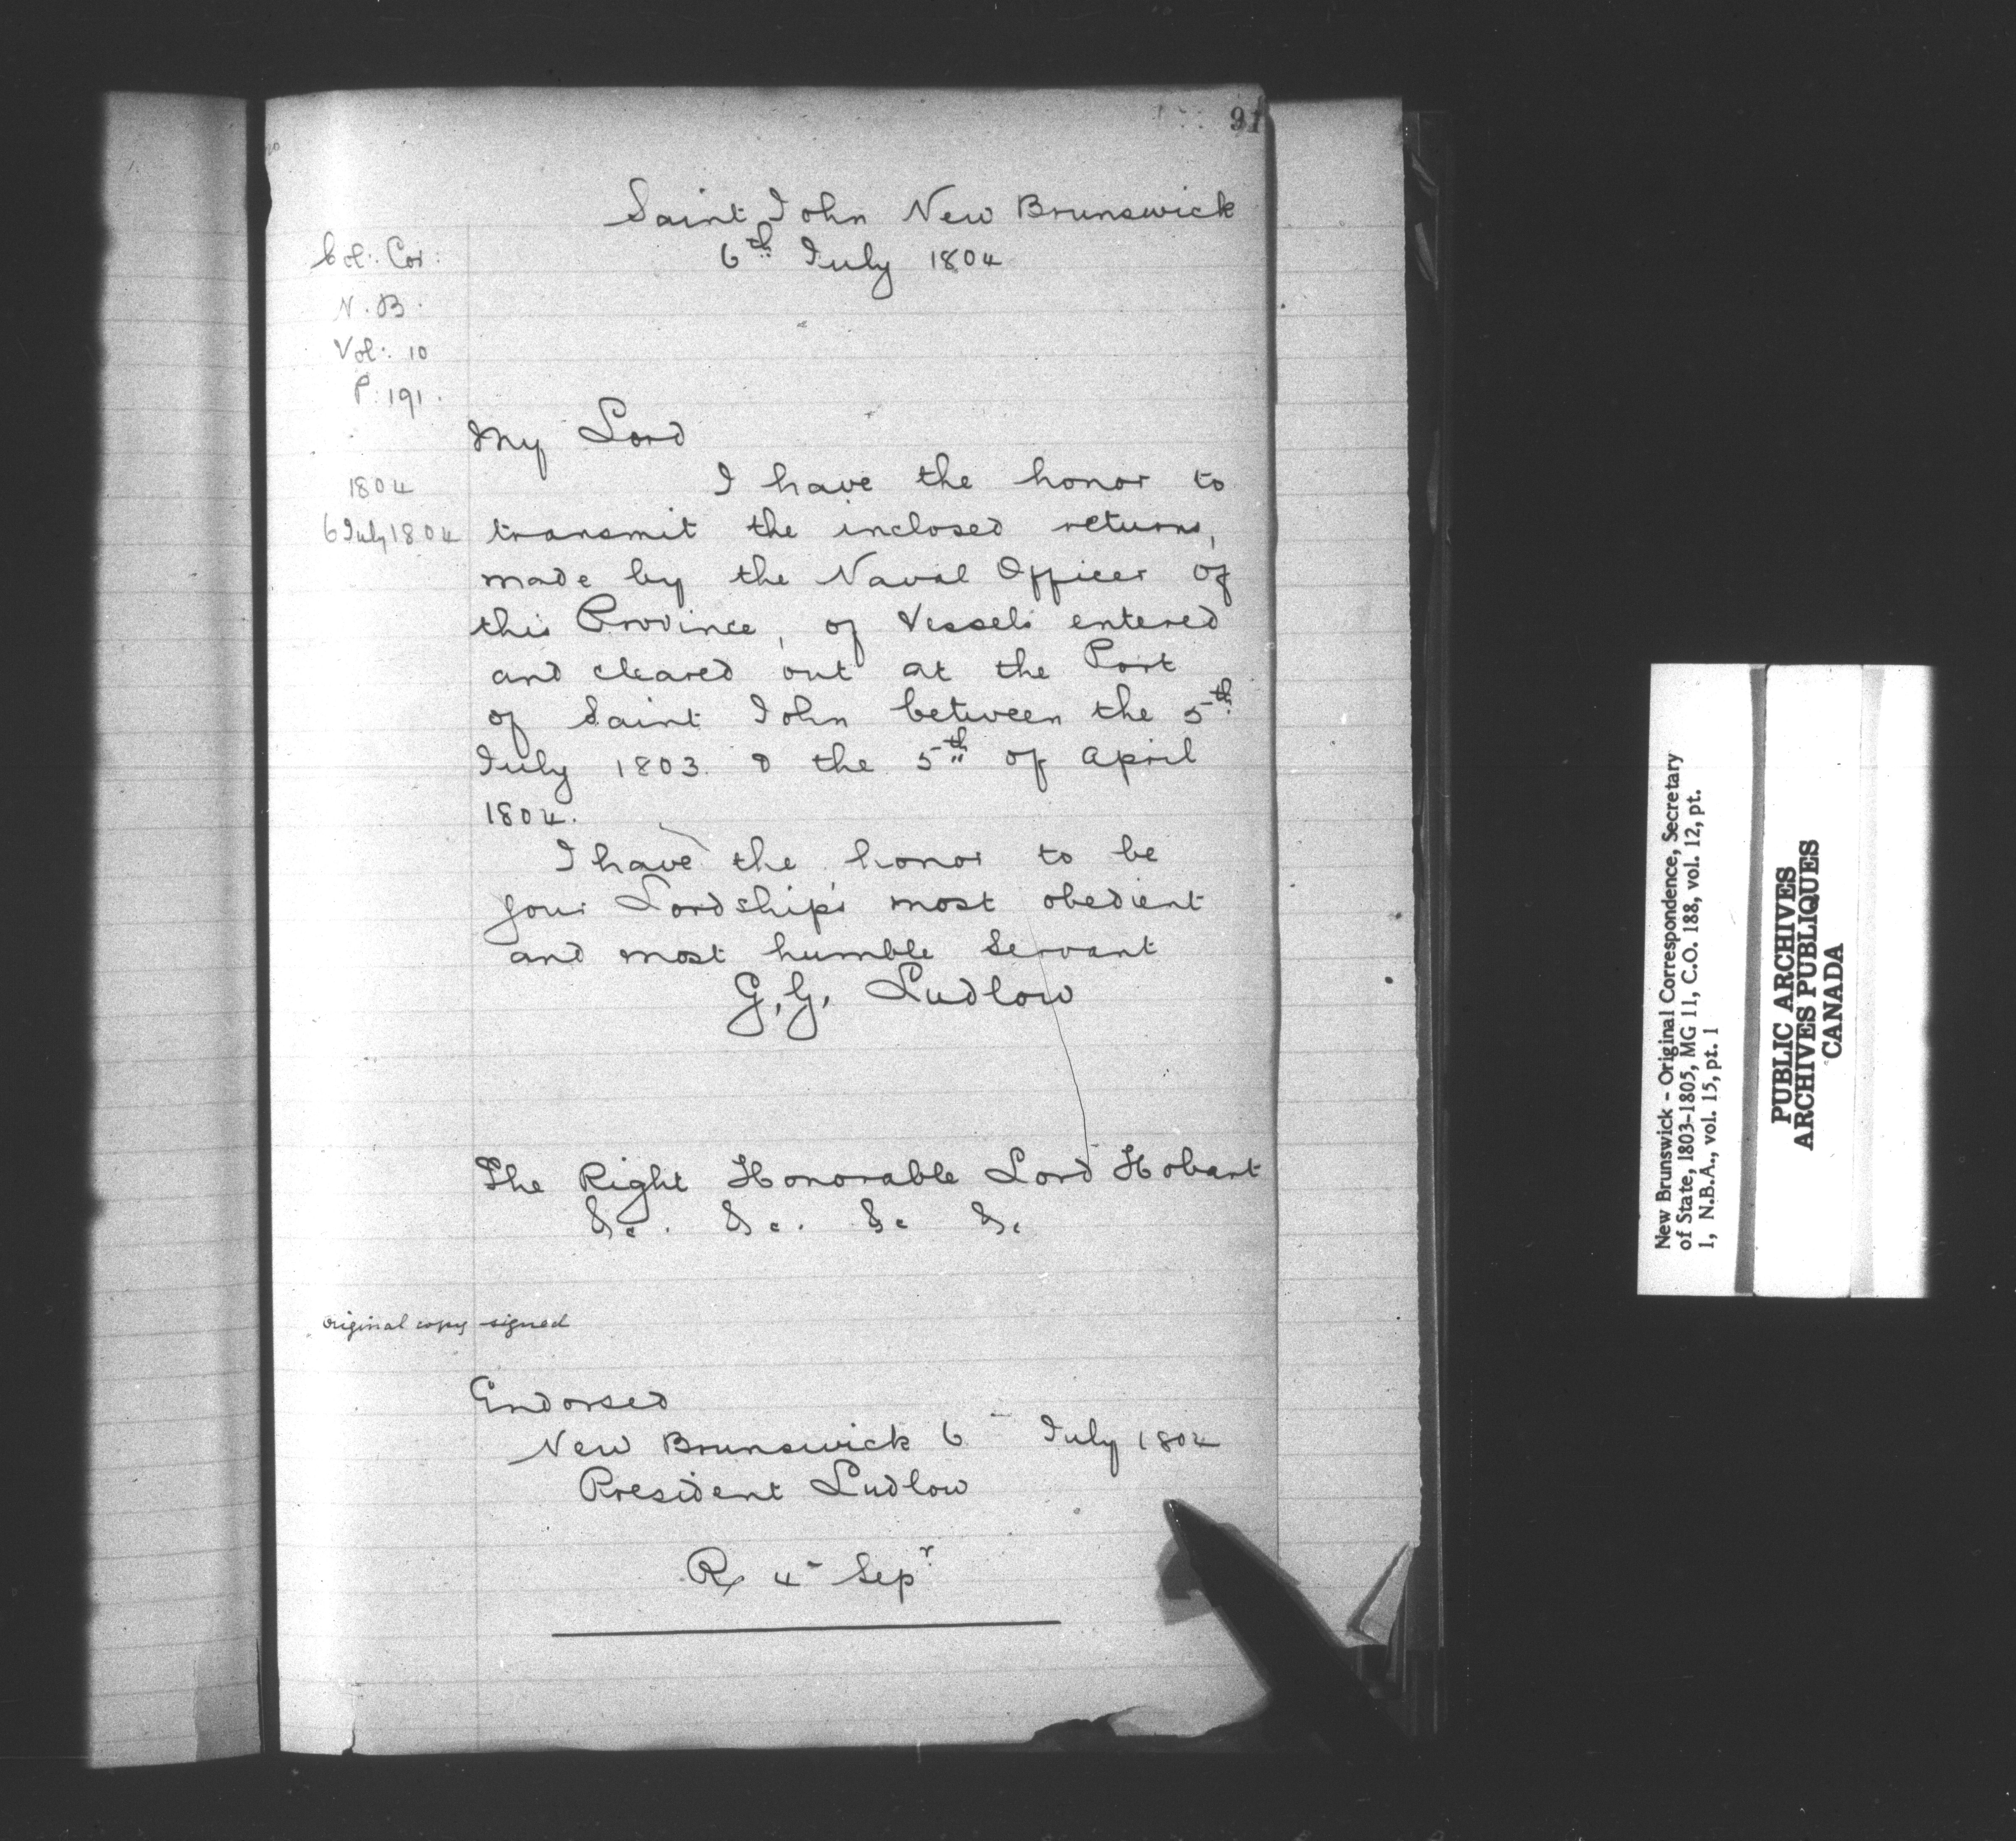 91
Saint John New Brunswick
6th July 1804
Col: Cor:
N. B.
Vol: 10
P: 191.
My Lord
1804
6 July 1804
I have the honor to
transmit the inclosed returns,
made by the Naval Officer of
this Province, of Vessels entered
and cleared out at the Port
of Saint John between the 5th
July 1803 & the 5th of April
1804.
I have the honor to be
your Lordship's most obedient
and most humble Servant
G, G, Ludlow
The Right Honorable Lord Hobart
&c. &c. &c &c
original copy signed
Endorsed
New Brunswick 6 July 1804
President Ludlow
R 4 Sepr
New Brunswick - Original Correspondence, Secretary
of State, 1803-1805, MG 11, C.O. 188, vol. 12, pt.
1, N.B.A., vol. 15, pt. 1
PUBLIC ARCHIVES
ARCHIVES PUBLIQUES
CANADA